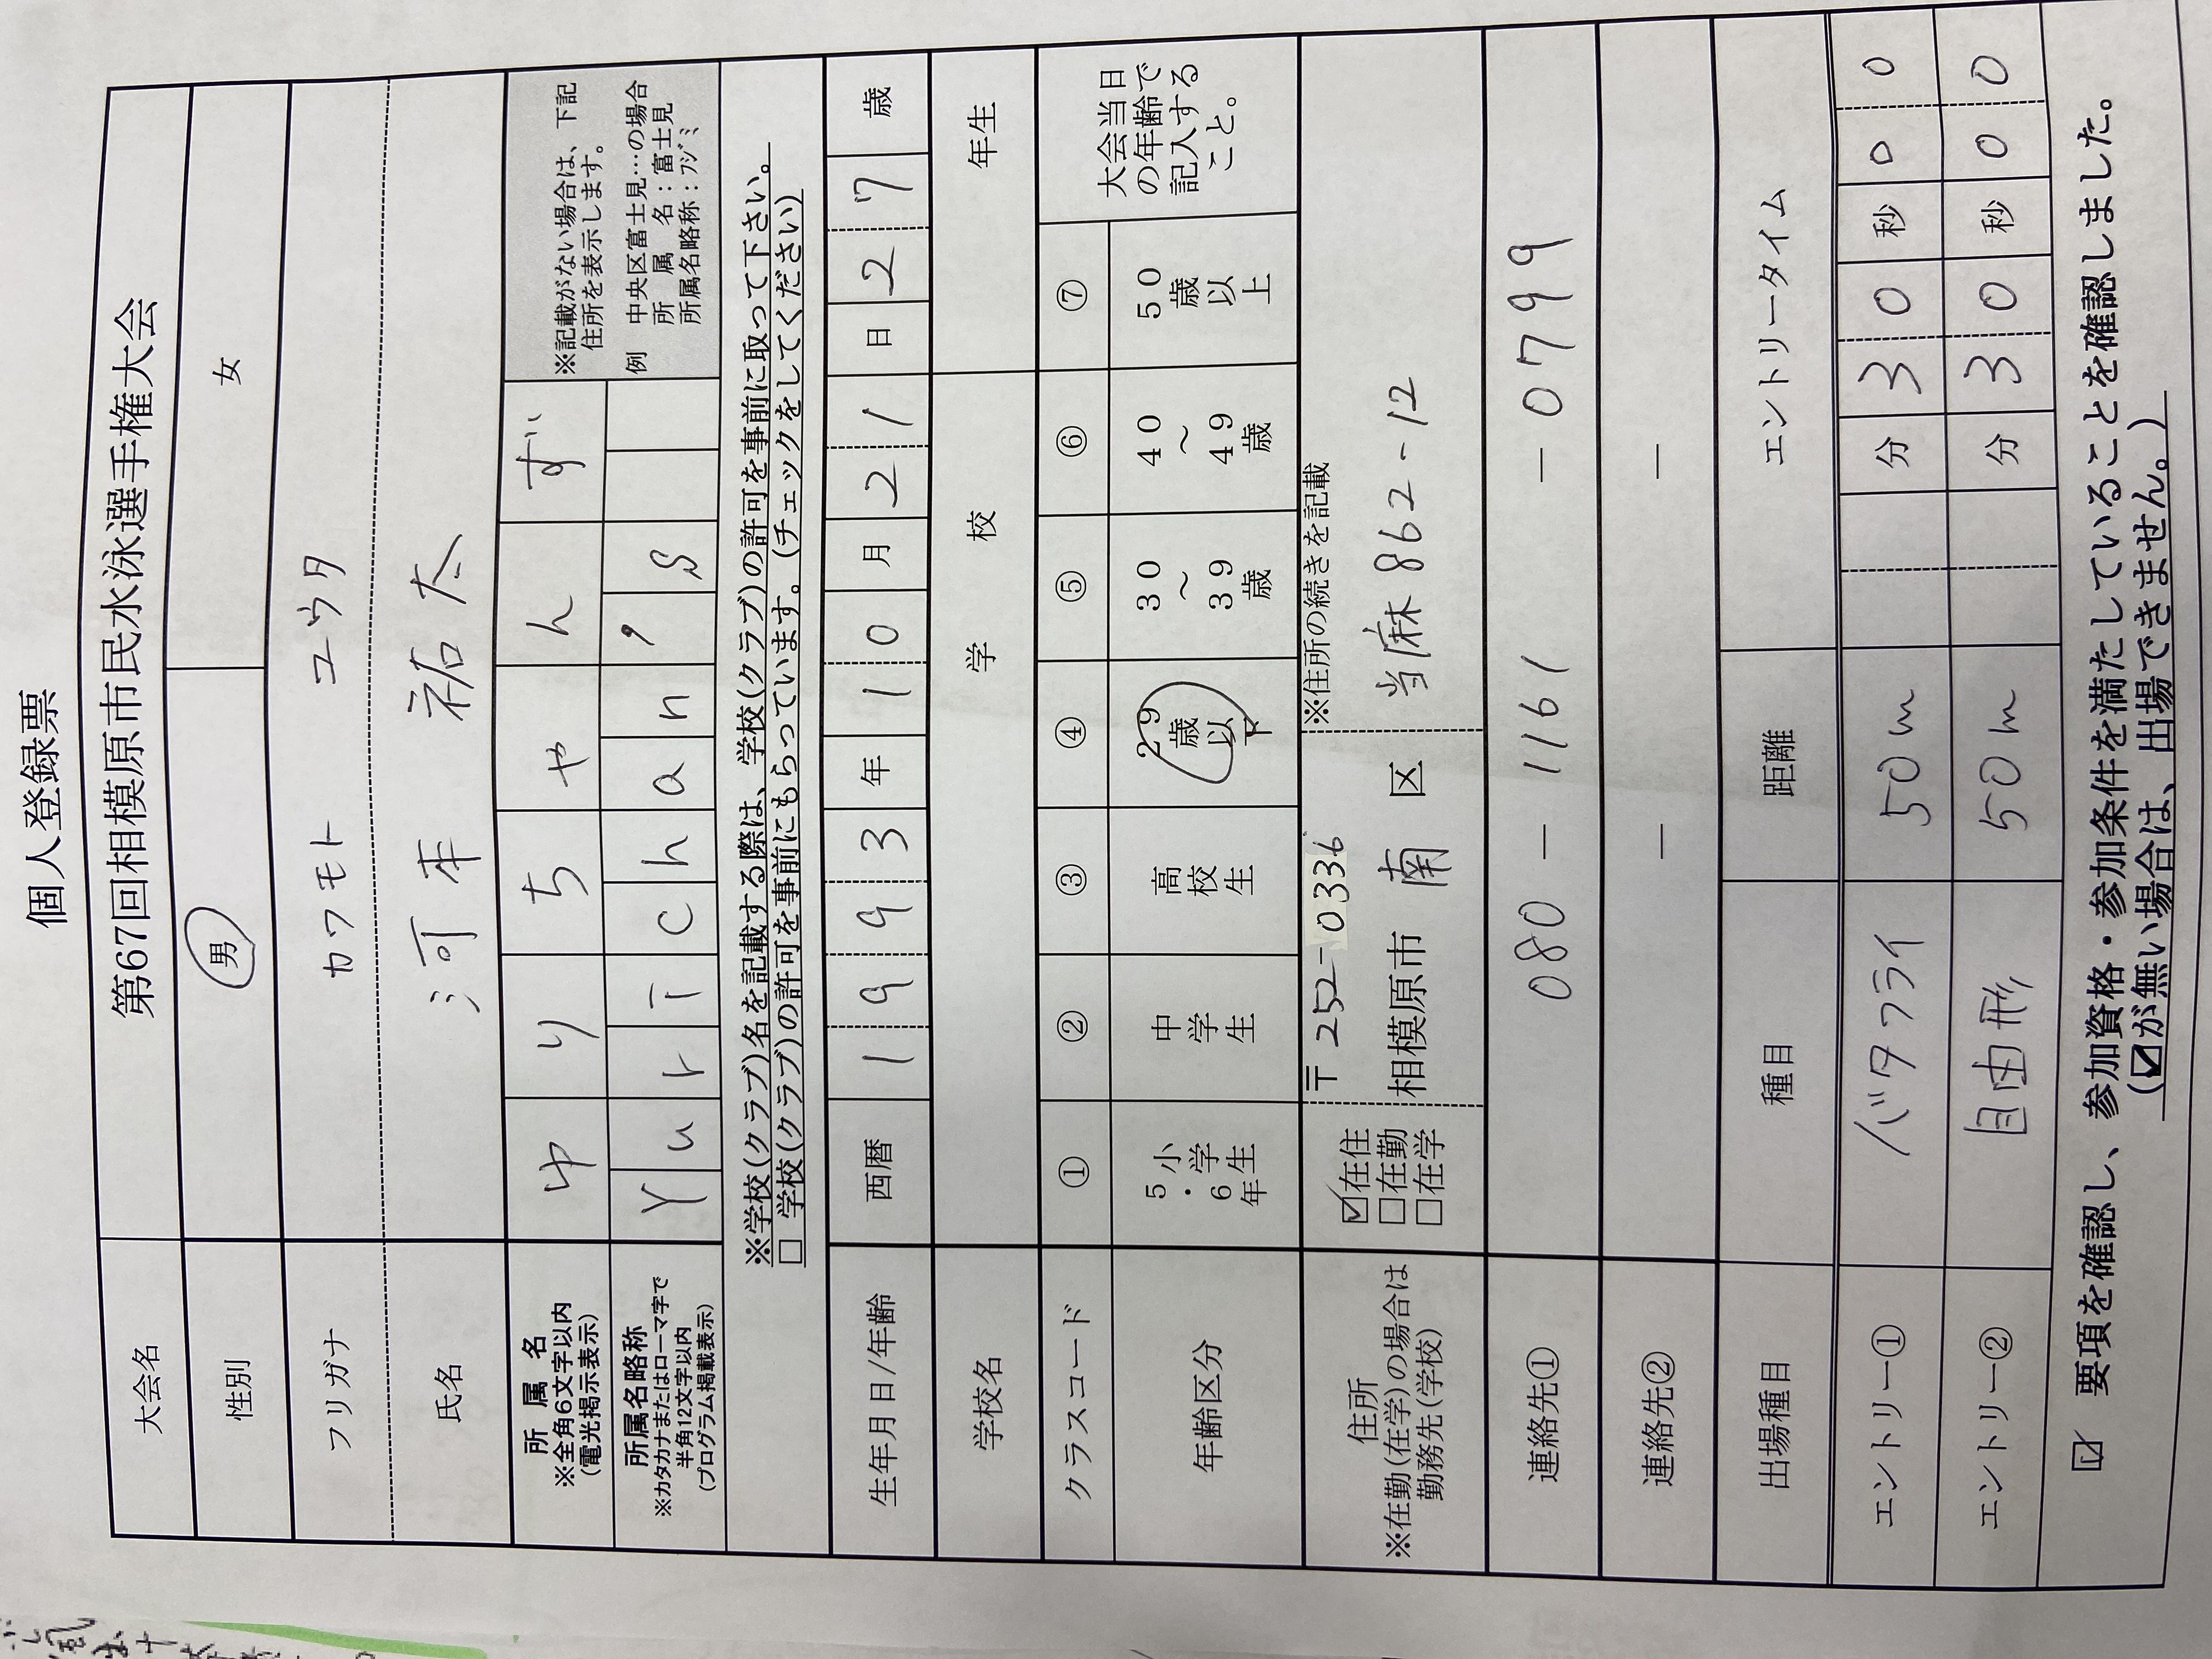 個人登録票
大会名 第67回相模原市民水泳選手権大会
性別 男 女
フリガナ カワモト ユウタ
氏名 河本 祐太
所属名 ゆりちゃんず
※全角6文字以内
(電光掲示表示)
※記載がない場合は、下記
住所を表示します。
所属名略称 Yurichan's
※カタカナまたはローマ字で
半角12文字以内
(プログラム掲載表示)
例 中央区富士見…の場合
所属名:富士見
所属名略称:ﾌｼﾞﾐ
※学校(クラブ)名を記載する際は、学校(クラブ)の許可を事前に取って下さい。
□ 学校(クラブ)の許可を事前にもらっています。(チェックをしてください)
生年月日/年齢 西暦 1993年10月21日27歳
学校名 学校 年生
クラスコード ① ② ③ ④ ⑤ ⑥ ⑦
年齢区分 小学生5・6年 中学生 高校生 29歳以下 30～39歳 40～49歳 50歳以上
大会当日
の年齢で
記入する
こと。
住所
※在勤(在学)の場合は
勤務先(学校)
☑在住
□在勤
□在学
〒252-0336
相模原市 南 区
※住所の続きを記載
当麻862-12
連絡先① 080 — 1161 — 0799
連絡先② — —
出場種目 種目 距離 エントリータイム
エントリー① バタフライ 50m 分30秒00
エントリー② 自由形 50m 分30秒00
☑ 要項を確認し、参加資格・参加条件を満たしていることを確認しました。
(☑が無い場合は、出場できません。)